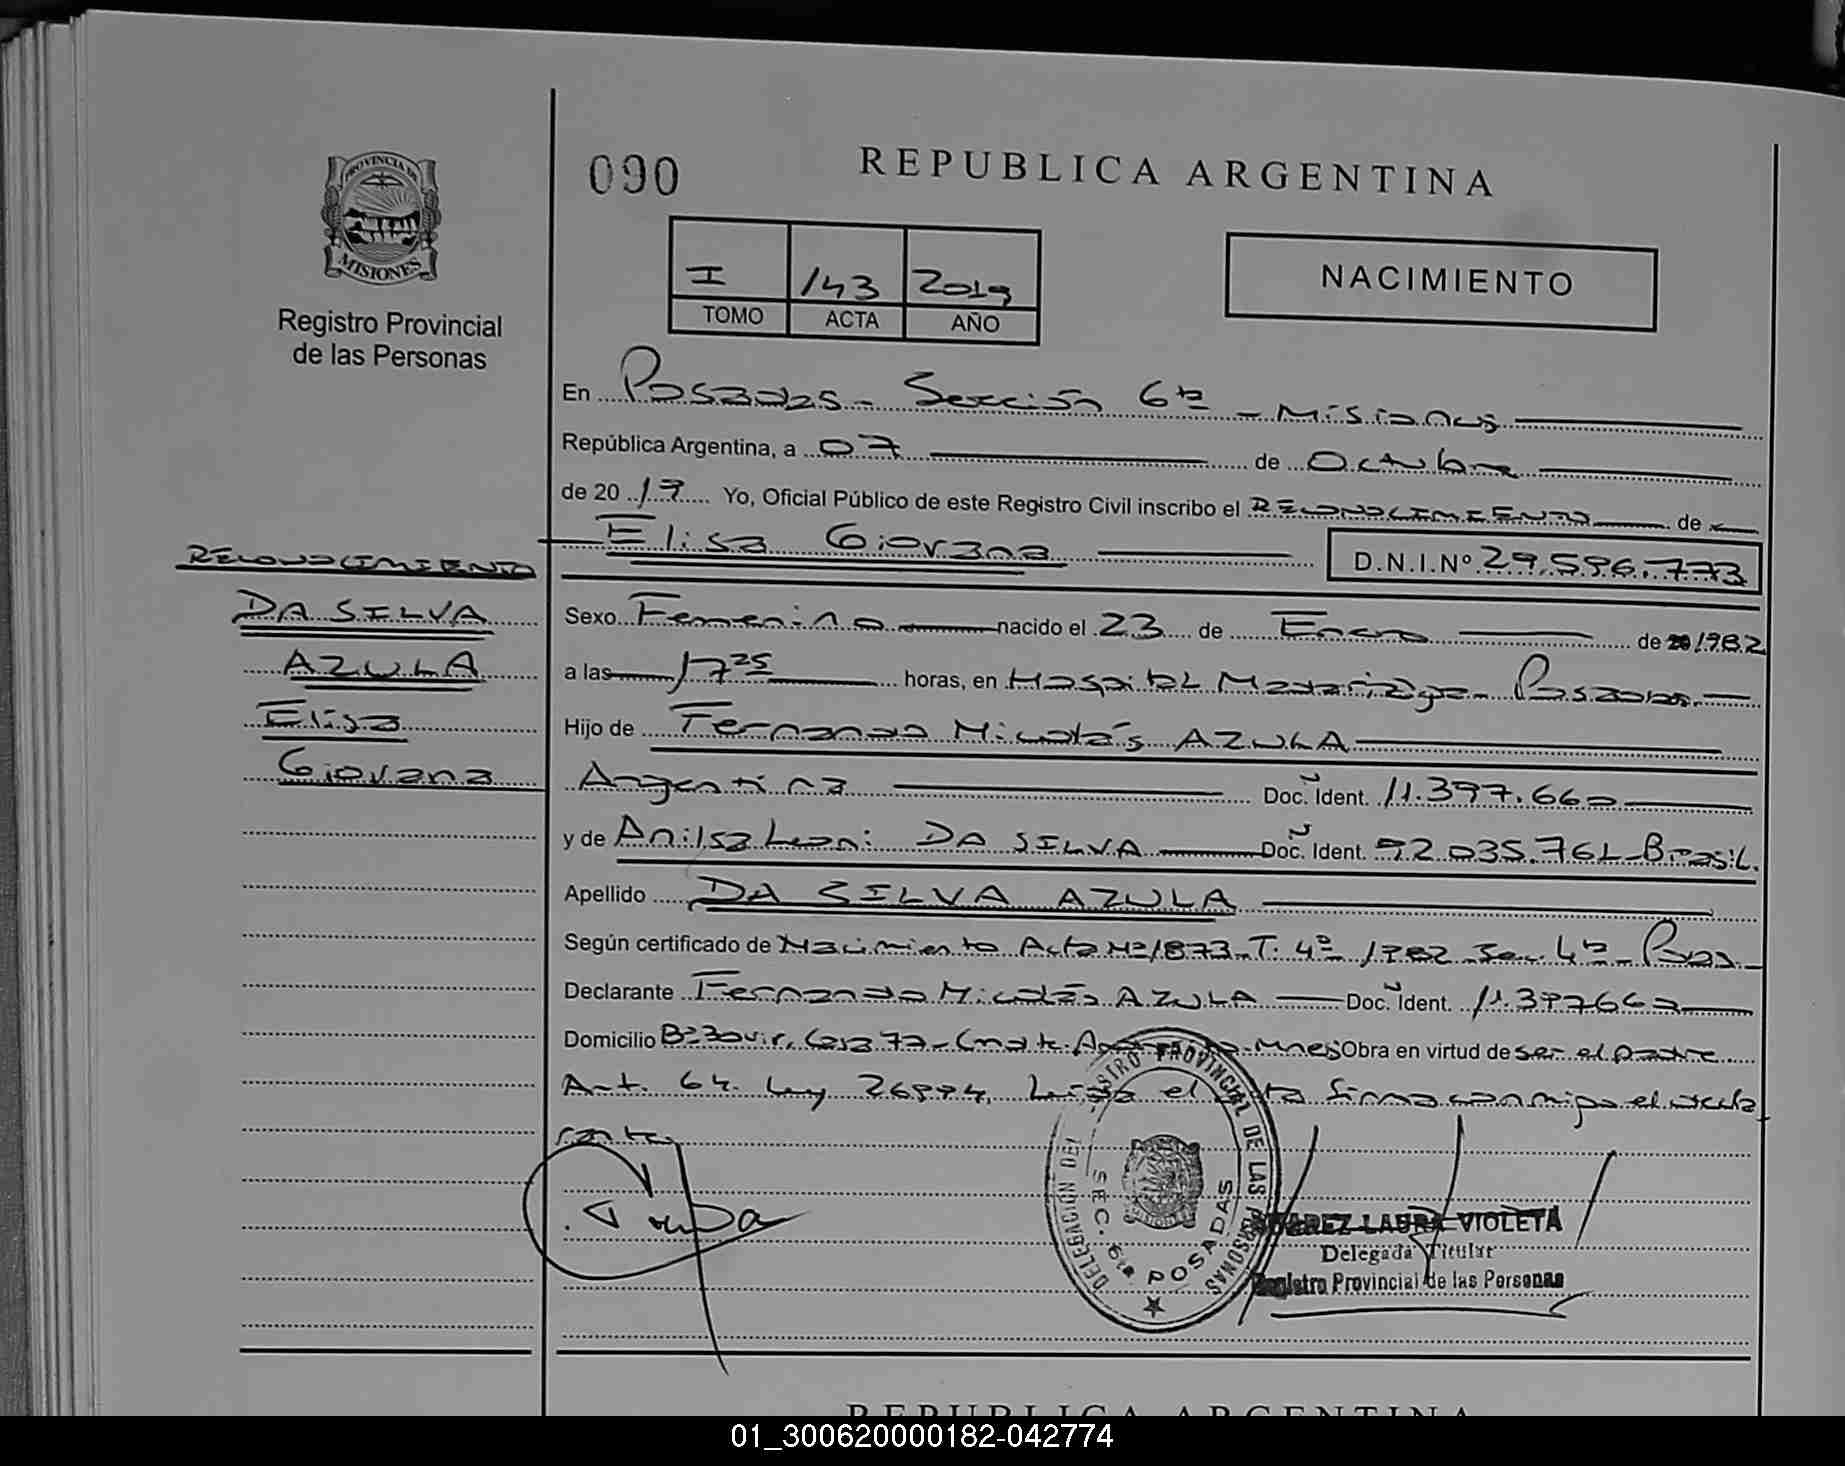 090
REPUBLICA ARGENTINA
PROVINCIA DE
MISIONES
Registro Provincial
de las Personas
I 143 2019
TOMO ACTA AÑO
NACIMIENTO
En Posadas - Sección 6ta - Misiones
República Argentina, a 07 de Octubre
de 20 19 Yo, Oficial Público de este Registro Civil inscribo el RECONOCIMIENTO de
Elisa Giovana D.N.I.Nº 29.596.773
RECONOCIMIENTO
DA SILVA
AZULA
Elisa
Giovana
Sexo Femenino nacido el 23 de Enero de 1982
a las 17 25 horas, en Hospital Posadas
Hijo de Fernando Nicolás AZULA
Argentina Doc. Ident. 11.397.660
y de Anilsa Leoni DA SILVA Doc. Ident. 92.035.761 - Brasil.
Apellido DA SILVA AZULA
Según certificado de Nacimiento Acta Nº 1873 - T: 4º 1982 Sec. 4ta - Pdas
Declarante Fernando Nicolás AZULA Doc. Ident. 11.397660
Domicilio Casa 77 - Mnes Obra en virtud de ser el padre
Art. 64. Ley 26994, el firma conmigo el decla
rante
DELEGACIÓN DEL REGISTRO PROVINCIAL DE LAS PERSONAS
SEC. 6ta POSADAS
SUAREZ LAURA VIOLETA
Delegada Titular
Registro Provincial de las Personas
REPUBLICA ARGENTINA
01_300620000182-042774